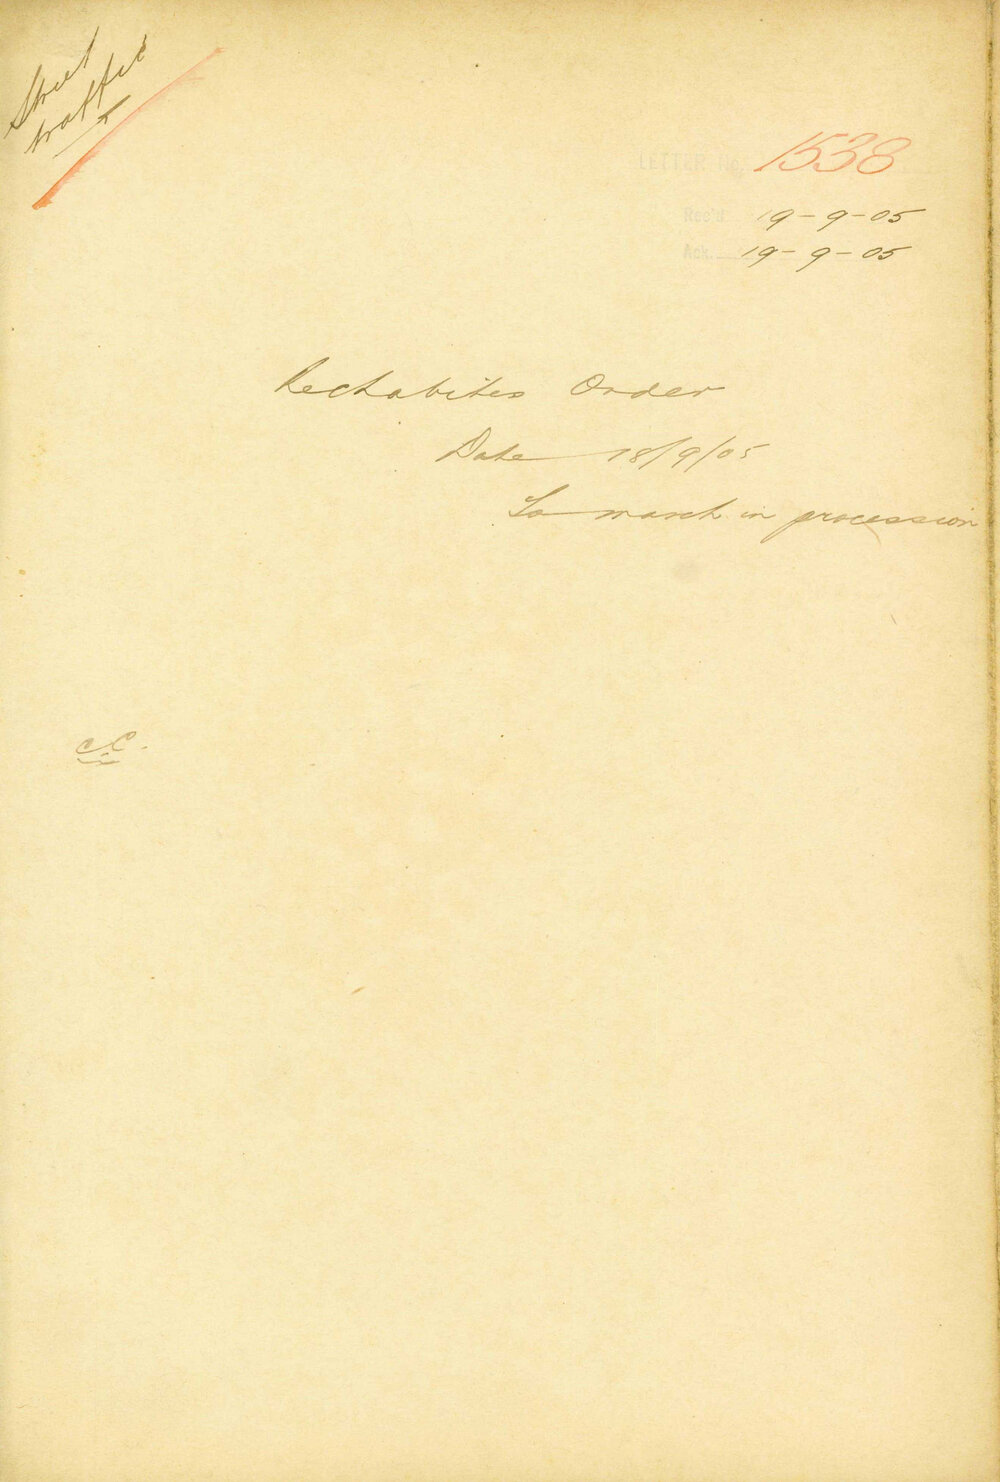 Street
traffic
LETTER No. 1538
Rec'd 19-9-05
Ack. 19-9-05
Rechabites Order
Date 18/9/05
To march in procession